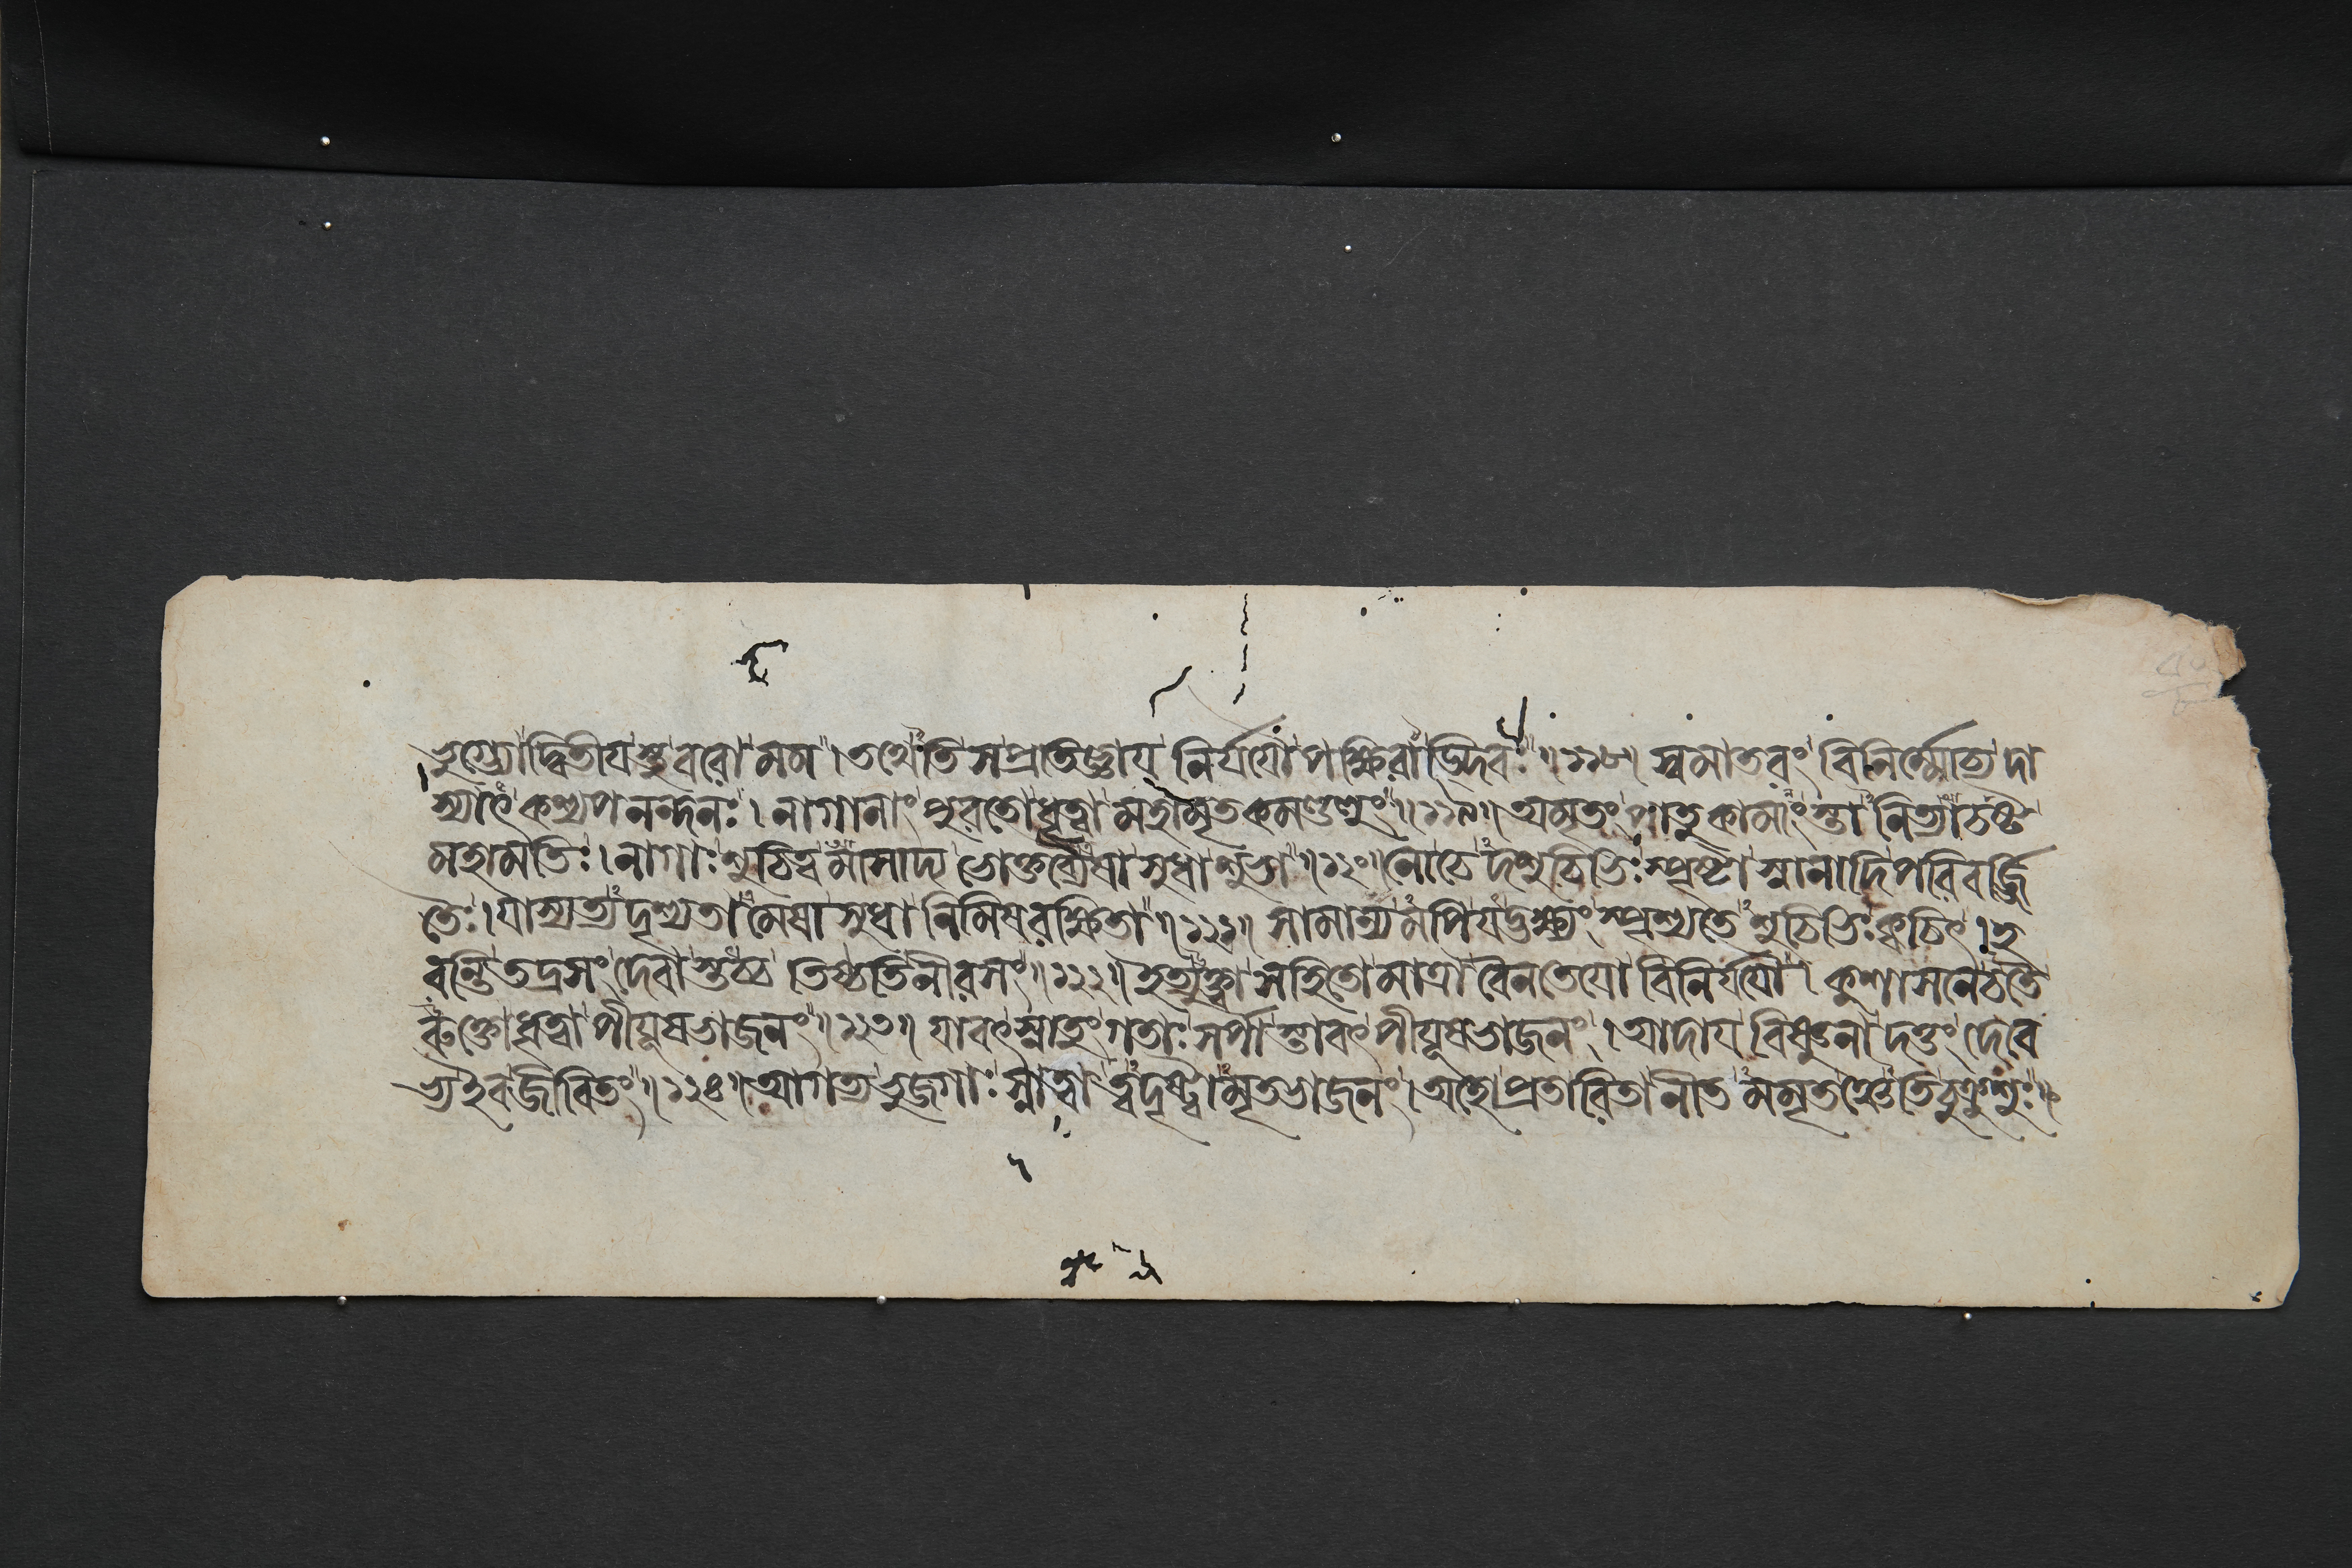 দ্বিতীযস্তু বরো মম । তথেতি স প্রতিজ্ঞায নির্যযৌ পক্ষিরাড্দিবঃ ॥ ১১৮ ॥ স্বমাতরং বিনির্ম্মোচ্য দা
স্যাৎ কশ্যপনন্দনঃ । নাগানাং পুরতো ধৃত্বা মহামৃতকমণ্ডলুং ॥ ১১৯ ॥ অমৃতং পাতুকামাংস্তানিত্যাচষ্ট
মহামতিঃ । নাগাঃ শুচিত্বমাসাদ্য ভোক্তব্যৈষা সুধা শুভা ॥ ১২০ ॥ নোচেদশুচিভিঃ স্পৃষ্টা স্নানাদিপরিবর্জ্জি
তৈঃ । যাস্যত্যদৃশ্যতামেষা সুধা নিমিষরক্ষিতা ॥ ১২১ ॥ সামান্যমপি যদ্ভক্ষ্যং স্পৃশ্যতে শুচিভিঃ ক্বচিৎ । হ
রন্তি তদ্রসং দেবাস্তচ্চ তিষ্ঠতি নীরসং ॥ ১২২ ॥ ইত্যুক্ত্বা সহিতো মাত্রা বৈনতেযো বিনির্যযৌ । কুশাসনে চ তৈ
রুক্তো ধৃত্বা পীযূষভাজনং ॥ ১২৩ ॥ যাবৎ স্নাতুং গতাঃ সর্পাস্তাবৎ পীযূষভাজনং । আদায বিষ্ণুনা দত্তং দেবে
ভ্য ইব জীবিতং ॥ ১২৪ ॥ আগত্য ভুজগাঃ স্নাত্বা ত্বদৃষ্ট্বামৃতভাজনং । অহো প্রতারিতা নীতমমৃতঞ্চেতি চুক্রুশুঃ ॥